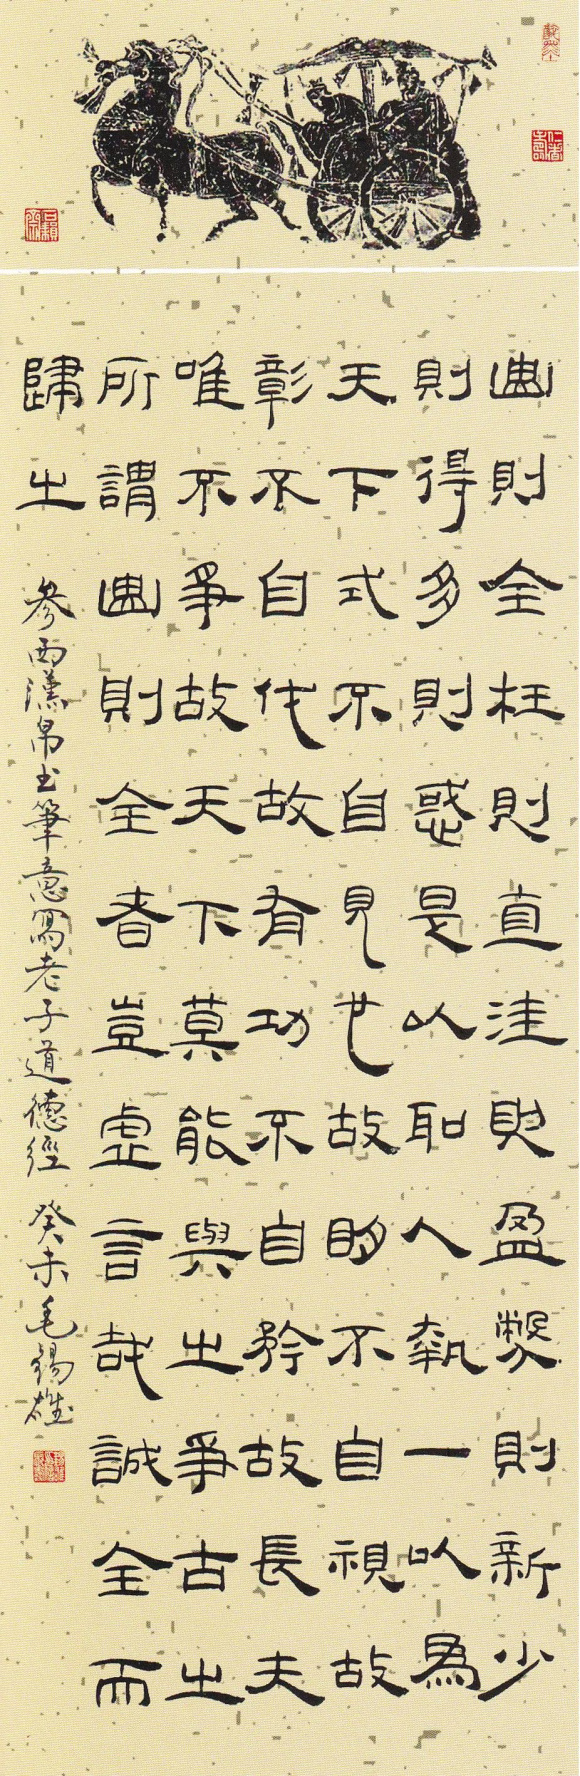 仁者壽
曲則全枉則直洼則盈敝則新少
則得多則惑是以聖人執一以為
天下式不自見也故明不自視故
彰不自伐故有功不自矜故長夫
唯不爭故天下莫能與之爭古之
所謂曲則全者豈虛言哉誠全而
歸之
參西漢帛書筆意寫老子道德經 癸未毛錫雄